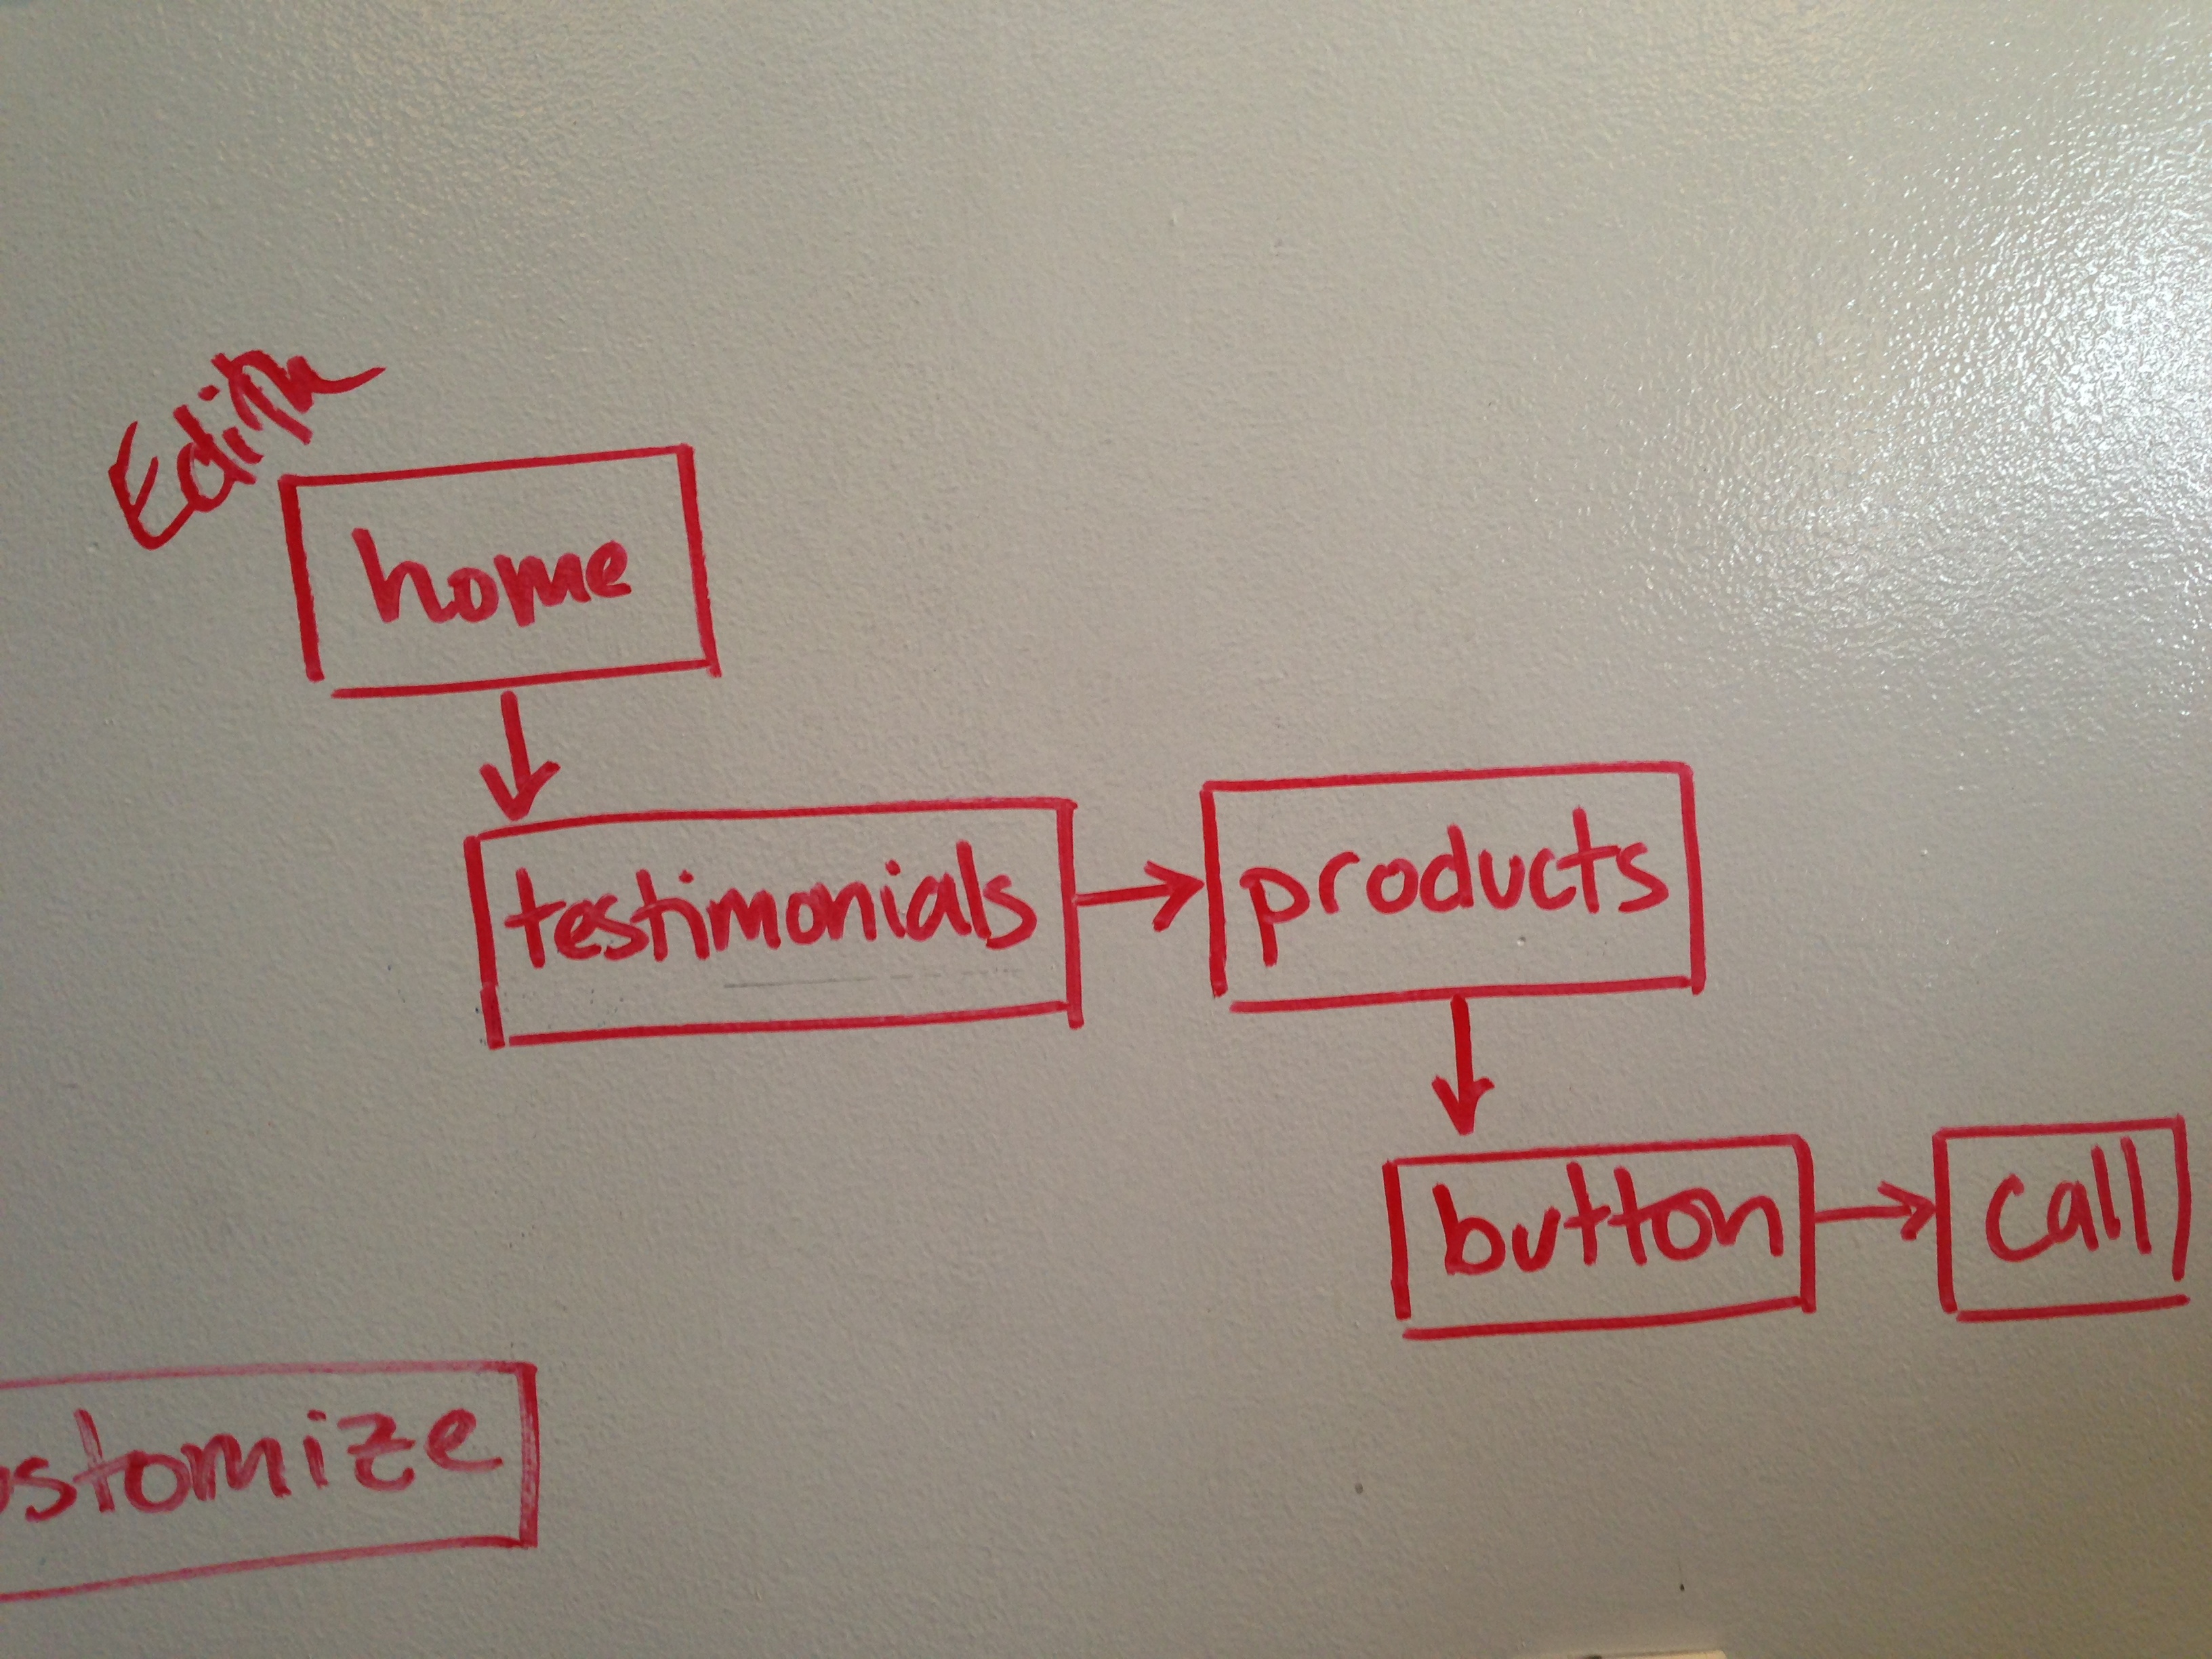 home
testimonials
products
button
call
ustomize